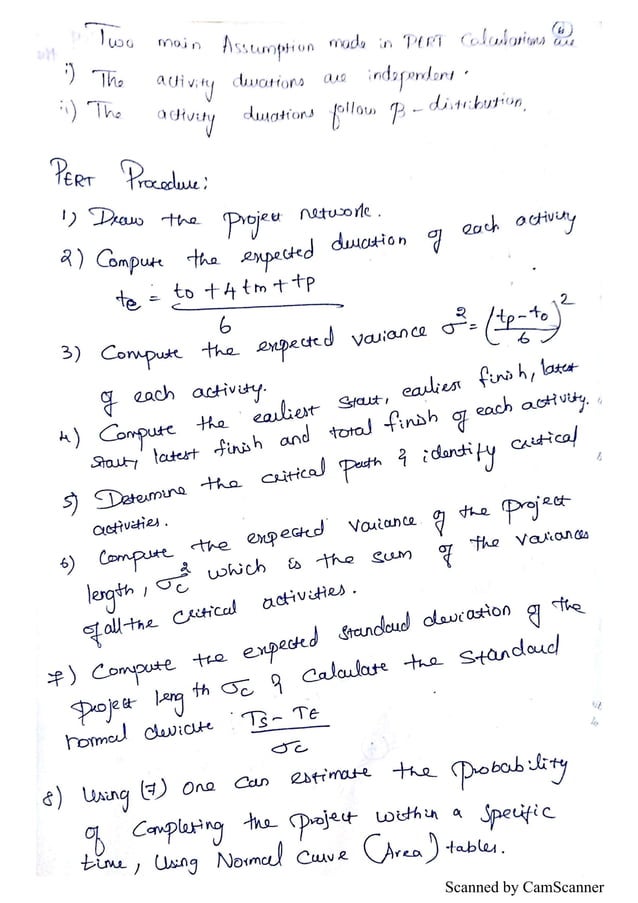 (4)
Two main Assumption made in PERT Calculations are
i) The activity durations are independent.
ii) The activity durations follow β-distribution.
PERT Procedure:
1) Draw the project network.
2) Compute the expected duration of each activity
te = to + 4tm + tp / 6
3) Compute the expected variance σ² = (tp - to / 6)²
of each activity.
4) Compute the earliest start, earliest finish, latest
start, latest finish and total finish of each activity.
5) Determine the critical path & identify critical
activities.
6) Compute the expected variance of the project
length, σc² which is the sum of the variances
of all the critical activities.
7) Compute the expected standard deviation of the
project length σc & calculate the standard
normal deviate : Ts - TE / σc
8) Using (7) one can estimate the probability
of Completing the project within a specific
time, Using Normal Curve (Area) tables.
Scanned by CamScanner